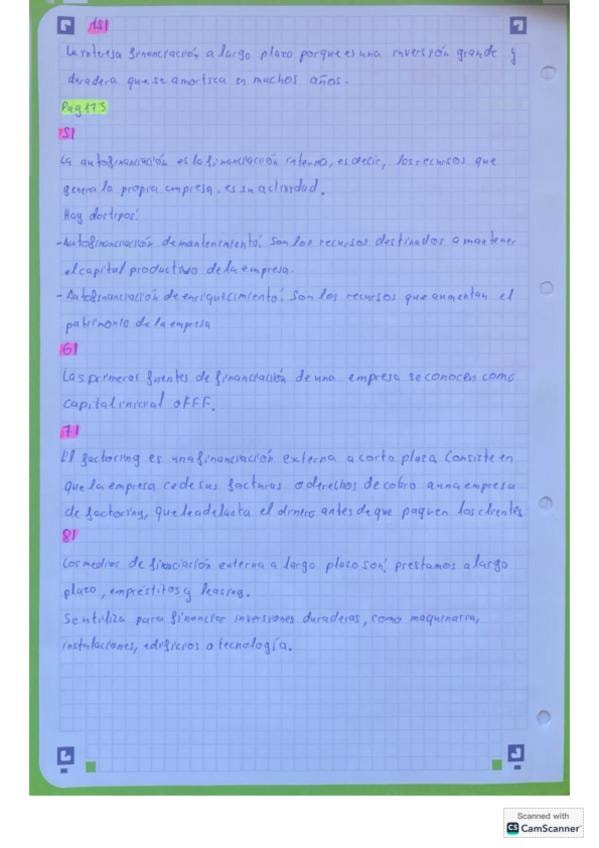 15)
Le interesa financiación a largo plazo porque es una inversión grande y
duradera que se amortiza en muchos años.
Pag 173
5)
La autofinanciación es la financiación interna, es decir, los recursos que
genera la propia empresa, es su actividad.
Hay dos tipos:
-Autofinanciación de mantenimiento: Son los recursos destinados a mantener
el capital productivo de la empresa.
-Autofinanciación de enriquecimiento: Son los recursos que aumentan el
patrimonio de la empresa
6)
Las primeras fuentes de financiación de una empresa se conocen como
capital inicial o FFF.
7)
El factoring es una financiación externa a corto plazo Consiste en
que la empresa cede sus facturas o derechos de cobro a una empresa
de factoring, que le adelanta el dinero antes de que paguen los clientes
8)
Los medios de financiación externa a largo plazo son: prestamos a largo
plazo, empréstitos y leasing.
Se utiliza para financiar inversiones duraderas, como maquinaria,
instalaciones, edificios o tecnología.
Scanned with
CS CamScanner